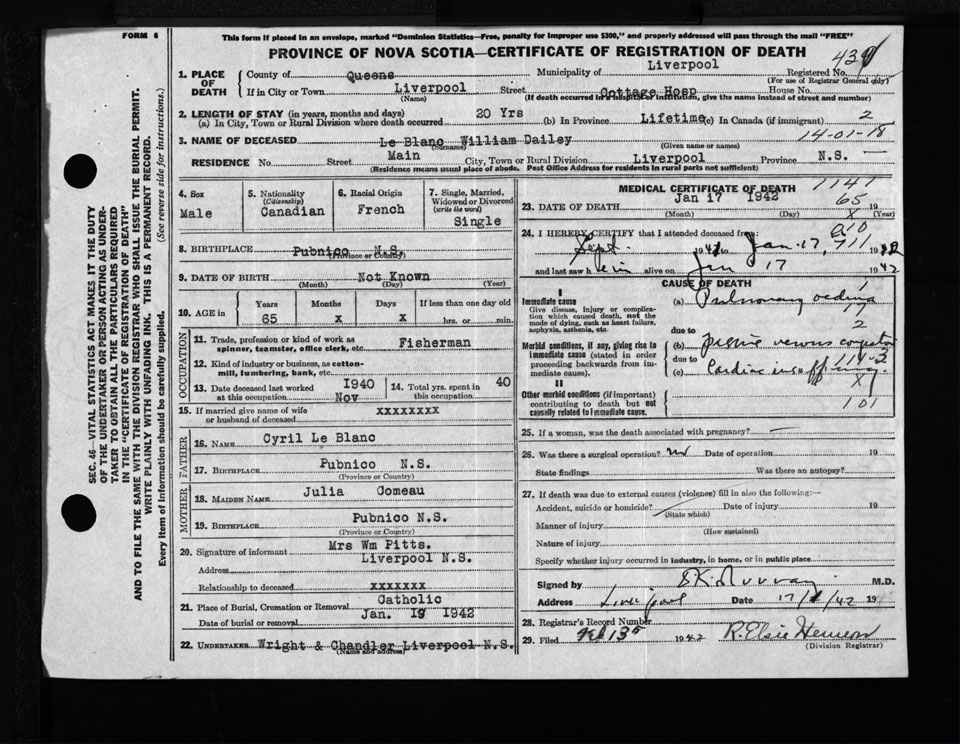 FORM 6
This form if placed in an envelope, marked "Dominion Statistics—Free, penalty for improper use $300," and properly addressed will pass through the mail "FREE"
PROVINCE OF NOVA SCOTIA—CERTIFICATE OF REGISTRATION OF DEATH
SEC. 46—VITAL STATISTICS ACT MAKES IT THE DUTY
OF THE UNDERTAKER OR PERSON ACTING AS UNDER-
TAKER TO OBTAIN ALL THE PARTICULARS REQUIRED
IN THE "CERTIFICATE OF REGISTRATION OF DEATH"
AND TO FILE THE SAME WITH THE DIVISION REGISTRAR WHO SHALL ISSUE THE BURIAL PERMIT.
WRITE PLAINLY WITH UNFADING INK. THIS IS A PERMANENT RECORD.
Every item of Information should be carefully supplied. (See reverse side for instructions.)
1. PLACE OF DEATH
County of Queens Municipality of Liverpool Registered No.
(For use of Registrar General only)
If in City or Town Liverpool Street Cottage Hosp House No.
(Name) (If death occurred in a hospital or institution, give the name instead of street and number)
2. LENGTH OF STAY (in years, months and days)
(a) In City, Town or Rural Division where death occurred 20 Yrs (b) In Province Lifetime (c) In Canada (if immigrant) 2
14-01-18
3. NAME OF DECEASED Le Blanc William Dailey
(Surname) (Given name or names)
RESIDENCE No. Street Main City, Town or Rural Division Liverpool Province N.S.
(Residence means usual place of abode. Post Office Address for residents in rural parts not sufficient)
4. Sex
Male
5. Nationality
(Citizenship)
Canadian
6. Racial Origin
French
7. Single, Married, Widowed or Divorced
(write the word)
Single
8. BIRTHPLACE Pubnico N.S.
(Province or Country)
9. DATE OF BIRTH Not Known
(Month) (Day) (Year)
10. AGE in
Years Months Days If less than one day old
65 x x hrs. or min.
OCCUPATION
11. Trade, profession or kind of work as spinner, teamster, office clerk, etc. Fisherman
12. Kind of industry or business, as cotton-mill, lumbering, bank, etc.
13. Date deceased last worked at this occupation 1940 Nov
14. Total yrs. spent in this occupation 40
15. If married give name of wife or husband of deceased xxxxxxxx
FATHER
16. NAME Cyril Le Blanc
17. BIRTHPLACE Pubnico N.S.
(Province or Country)
MOTHER
18. MAIDEN NAME Julia Comeau
19. BIRTHPLACE Pubnico N.S.
(Province or Country)
20. Signature of informant Mrs Wm Pitts.
Address Liverpool N.S.
Relationship to deceased xxxxxxx
21. Place of Burial, Cremation or Removal Catholic
Date of burial or removal Jan. 19 1942
22. UNDERTAKER Wright & Chandler Liverpool N.S.
(Name and address)
MEDICAL CERTIFICATE OF DEATH
1141
65
x
23. DATE OF DEATH Jan 17 1942
(Month) (Day) (Year)
24. I HEREBY CERTIFY that I attended deceased from:
Sept. 1941 to Jan. 17, 1942
711
and last saw h im alive on Jan 17 1942
CAUSE OF DEATH
I
Immediate cause
Give disease, injury or complication which caused death, not the mode of dying, such as heart failure, asphyxia, asthenia, etc.
(a) Pulmonary oedema
17
2
due to
Morbid conditions, if any, giving rise to immediate cause (stated in order proceeding backwards from immediate cause).
(b) passive venous congestion
due to
(c) Cardiac insufficiency
II
Other morbid conditions (if important) contributing to death but not causally related to immediate cause.
X
101
25. If a woman, was the death associated with pregnancy? —
26. Was there a surgical operation? no Date of operation 19
State findings Was there an autopsy?
27. If death was due to external causes (violence) fill in also the following:—
Accident, suicide or homicide? Date of injury 19
(State which)
Manner of injury
(How sustained)
Nature of injury
Specify whether injury occurred in industry, in home, or in public place
Signed by Murray M.D.
Address Liverpool Date 17/1/42 19
28. Registrar's Record Number
29. Filed Feb 13th 1942 R. Elsie
(Division Registrar)